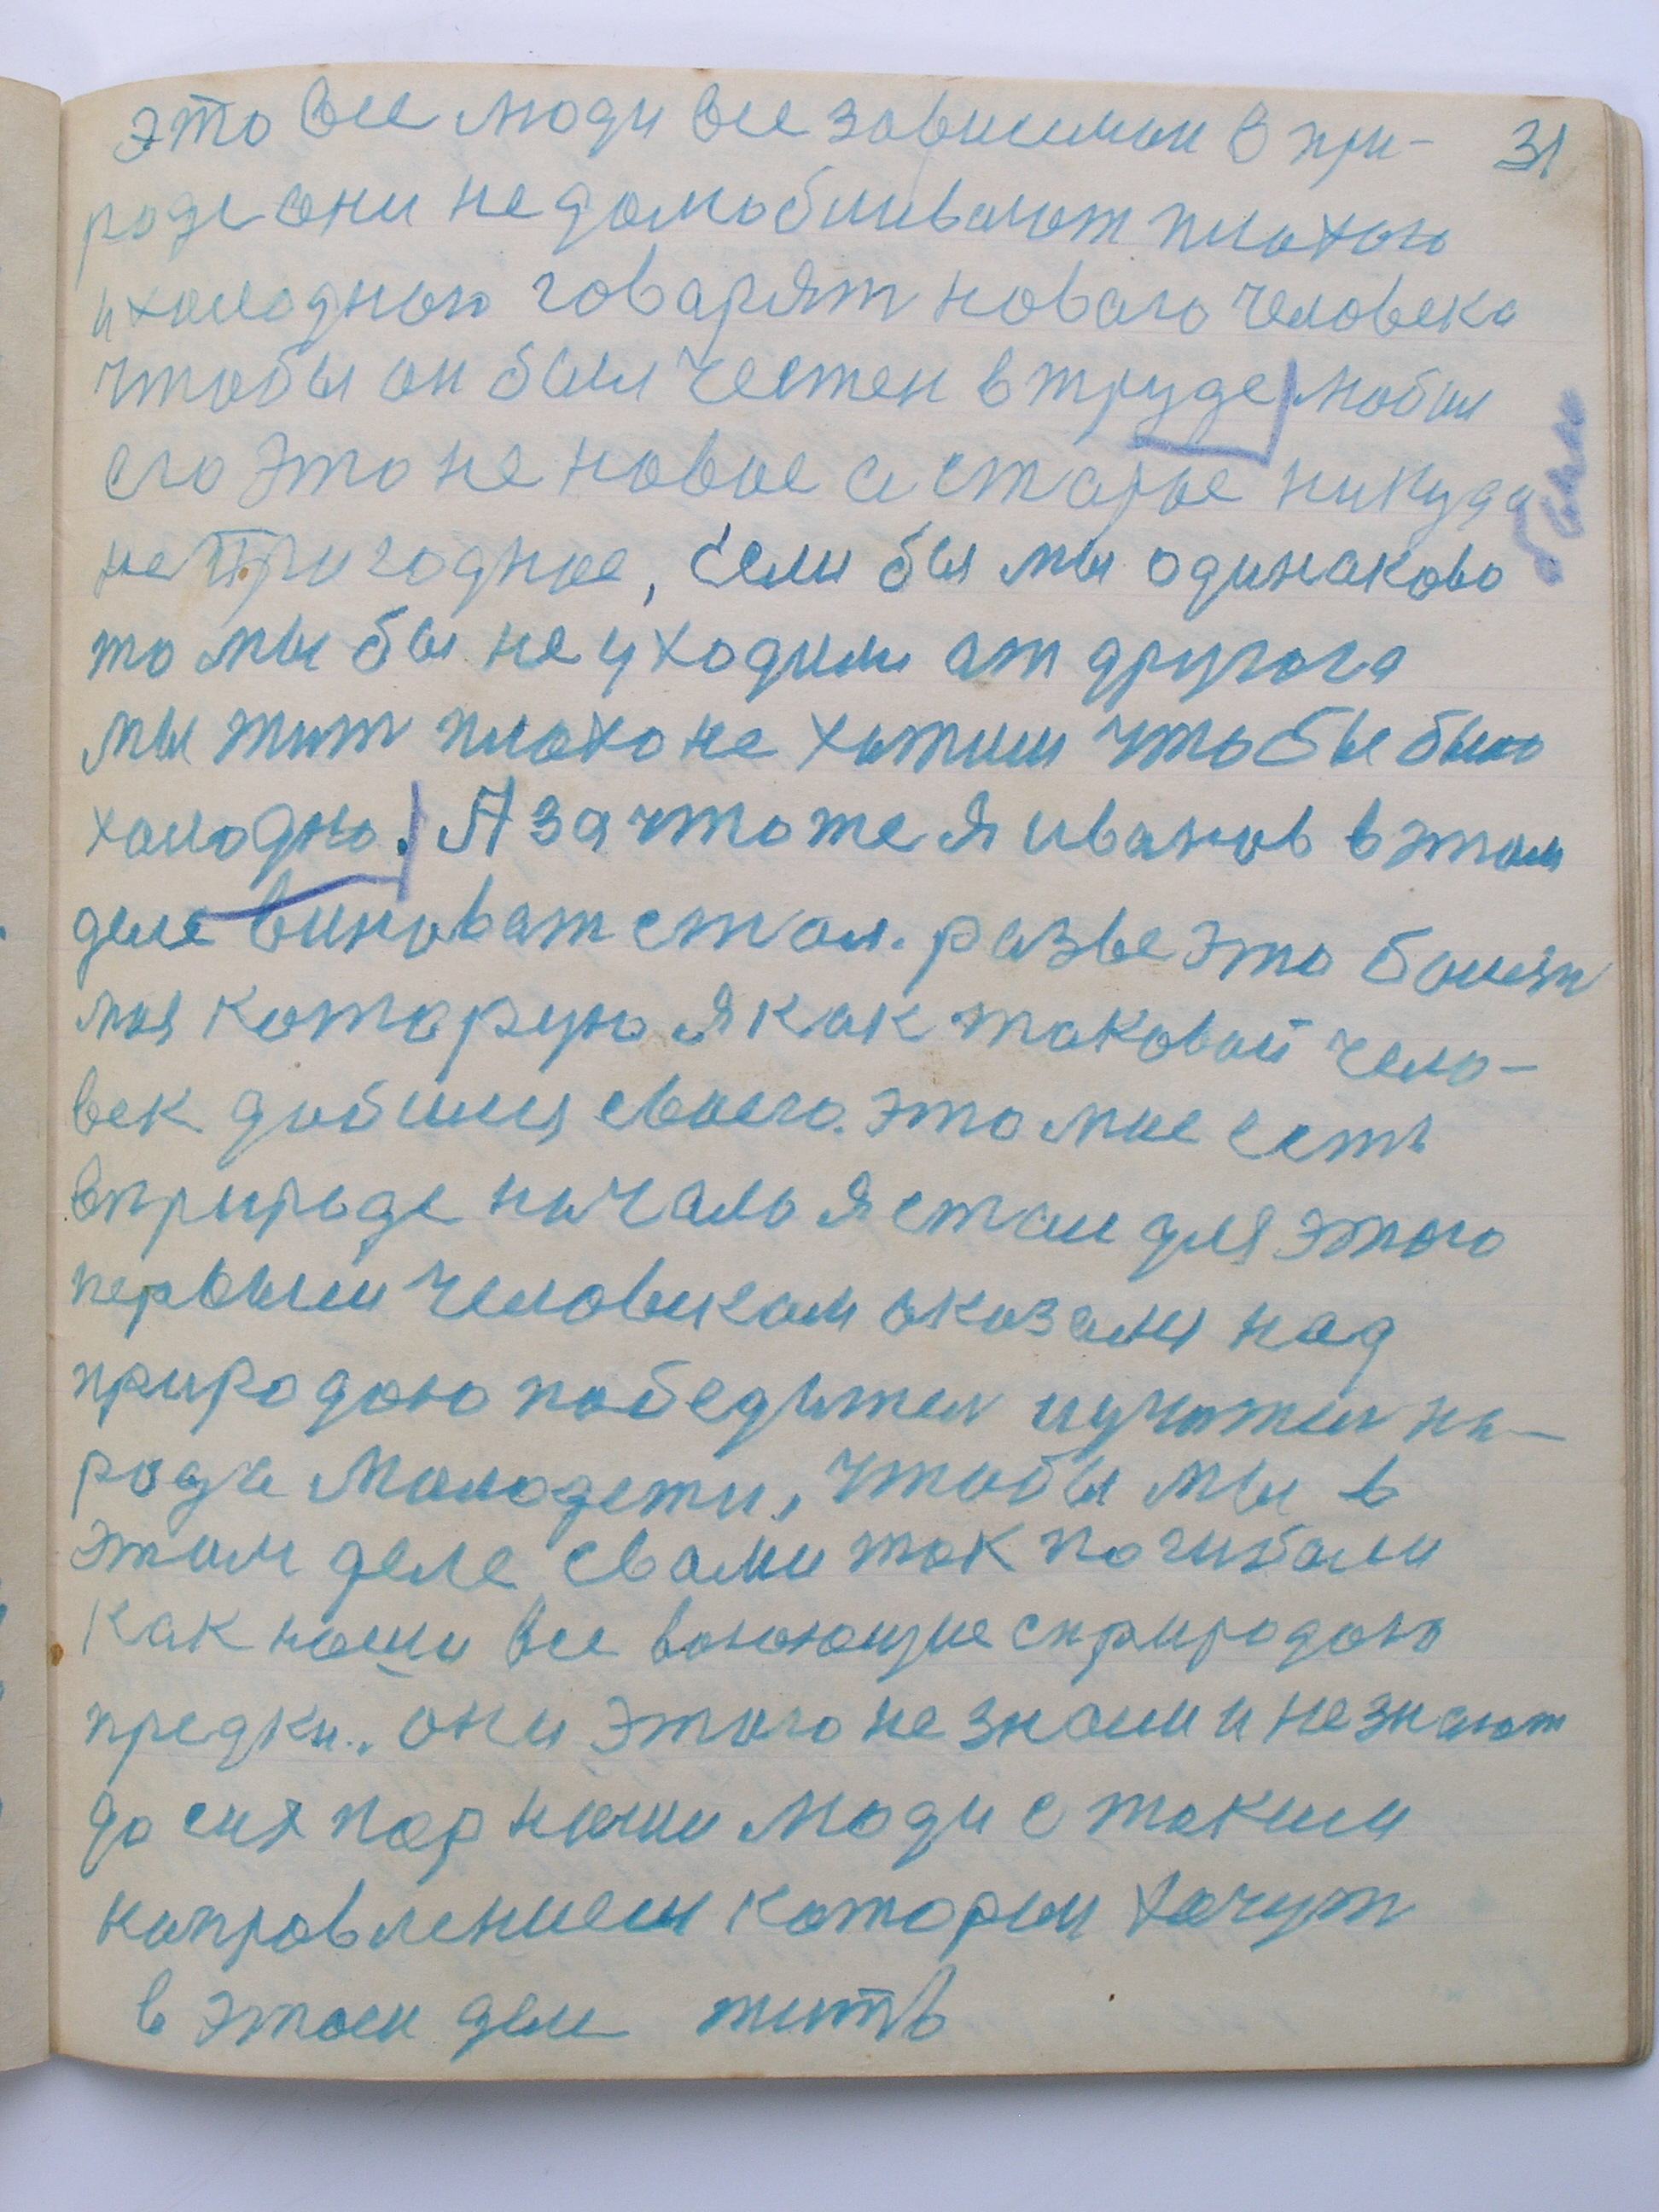 это все люди все зависимаи в при- 31
роде они не долюбливают плохою
и холодною говарят новаго человека
чтобы он был честен в труде любил
его это не новое а старое никуда
не пригодное, если бы мы одинаково
то мы бы не уходили от другога
мы жит плохо не хотим чтобы было
холодно. А за что же я иванов в этом
деле виноват стал. разве это болезн
моя которую я как таковой чело-
век добился своего. это мне есть
в природе начало я стал для этого
первым человеком оказался над
природою победител и учител на-
роде молодежи, чтобы мы в
этим деле с вами так погибали
как наши все воюющие с природою
предки. они этого не знали и не знают
до сих пор наши люди с таким
направлением которыи хочут
в этом деле жить
было